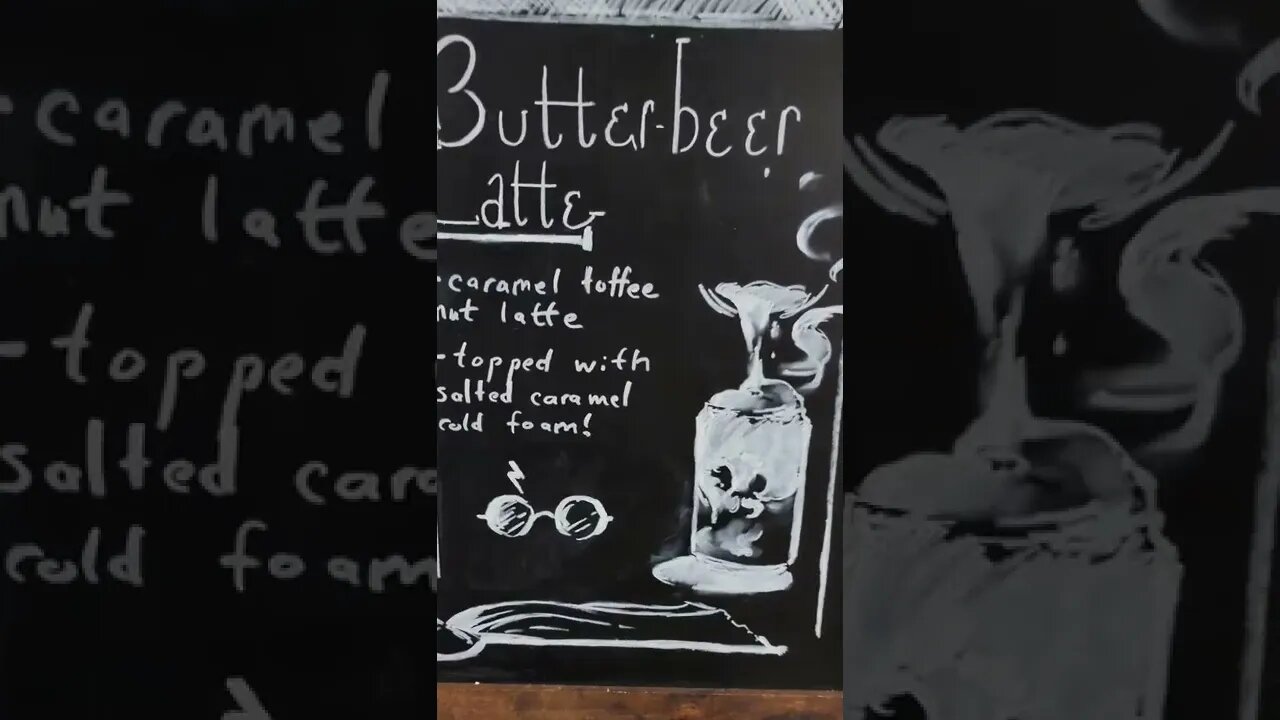 Butter-beer
Latte
-caramel toffee
nut latte
-topped with
salted caramel
cold foam!